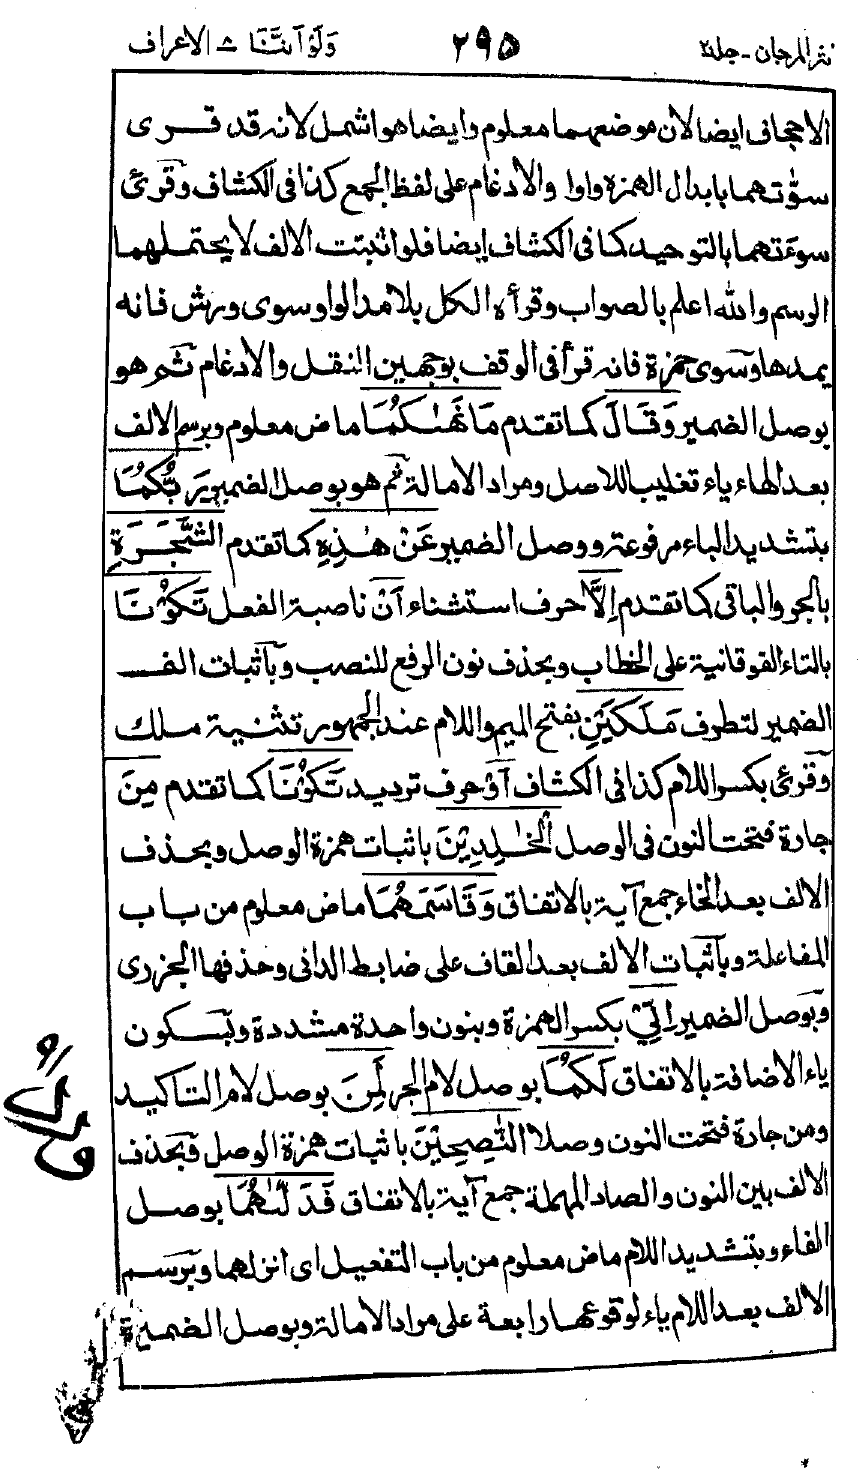 نثر المرجان - جلد ٢ ٢٩٥ ولو اننا ٨ الاعراف
الاحجاف ايضا لان موضعهما معلوم وايضا هو اشمل لانه قد قرى
سوّتهما بابدال الهمزة واوا والادغام على لفظ الجمع كذا فى الكشاف وقرئ
سوءتهما بالتوحيد كما فى الكشاف ايضا فلو اثبتت الالف لا يحتملهما
الرسم والله اعلم بالصواب وقرأه الكل بلا مد الواو سوى ورش فانه
يمدها وسوى حمزة فانه قرأ فى الوقف بوجهين النقل والادغام ثم هو
بوصل الضمير وَقَالَ كما تقدم مَا نَهٰىكُمَا ماض معلوم وبرسم الالف
بعد الهاء ياء تغليبا للاصل ومراد الامالة ثم هو بوصل الضمير رَبُّكُمَا
بتشديد الباء مرفوعة ووصل الضمير عَنْ هٰذِهِ كما تقدم الشَّجَرَةِ
بالجر والباقى كما تقدم اِلَّا حرف استثناء اَنْ ناصبة الفعل تَكُوْنَا
بالتاء الفوقانية على الخطاب وبحذف نون الرفع للنصب وباثبات الف
الضمير لتطرف مَلَكَيْنِ بفتح الميم واللام عند الجمهور تثنية ملك
وقرئ بكسر اللام كذا فى الكشاف اَوْ حرف ترديد تَكُوْنَا كما تقدم مِنَ
جارة فتحت النون فى الوصل الْخٰلِدِيْنَ باثبات همزة الوصل وبحذف
الالف بعد الخاء جمع آية بالاتفاق وَقَاسَمَهُمَا ماض معلوم من باب
المفاعلة وباثبات الالف بعد القاف على ضابط الدانى وحذفها الجزرى
وبوصل الضمير اِنِّىْ بكسر الهمزة وبنون واحدة مشددة وبسكون
ياء الاضافة بالاتفاق لَكُمَا بوصل لام الجر لَمِنَ بوصل لام التاكيد
ومن جارة فتحت النون وصلا النّٰصِحِيْنَ باثبات همزة الوصل وبحذف
الالف بين النون والصاد المهملة جمع آية بالاتفاق فَدَلّٰىهُمَا بوصل
الفاء وبتشديد اللام ماض معلوم من باب التفعيل اى انزلهما وبرسم
الالف بعد اللام ياء لوقوعها رابعة على مراد الامالة وبوصل الضمير